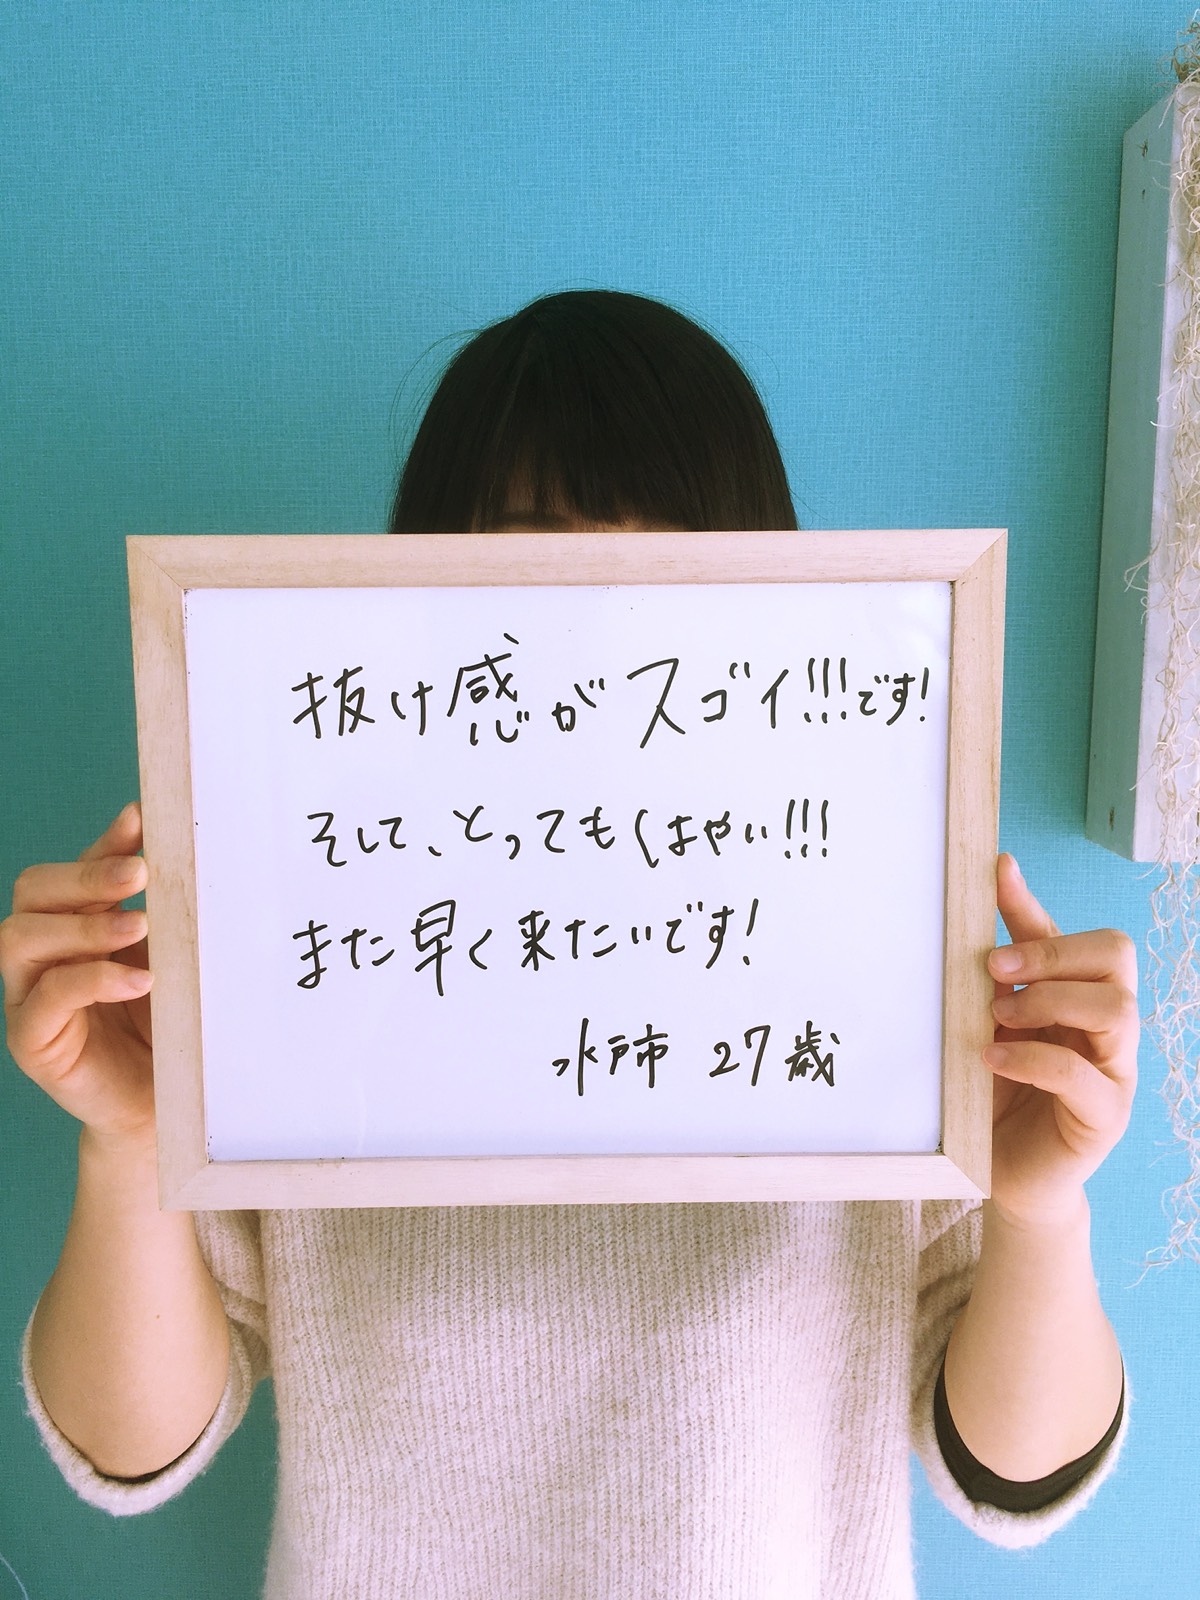 抜け感がスゴイ!!!です!
そして、とってもはやい!!!
また早く来たいです!
水戸市 27歳